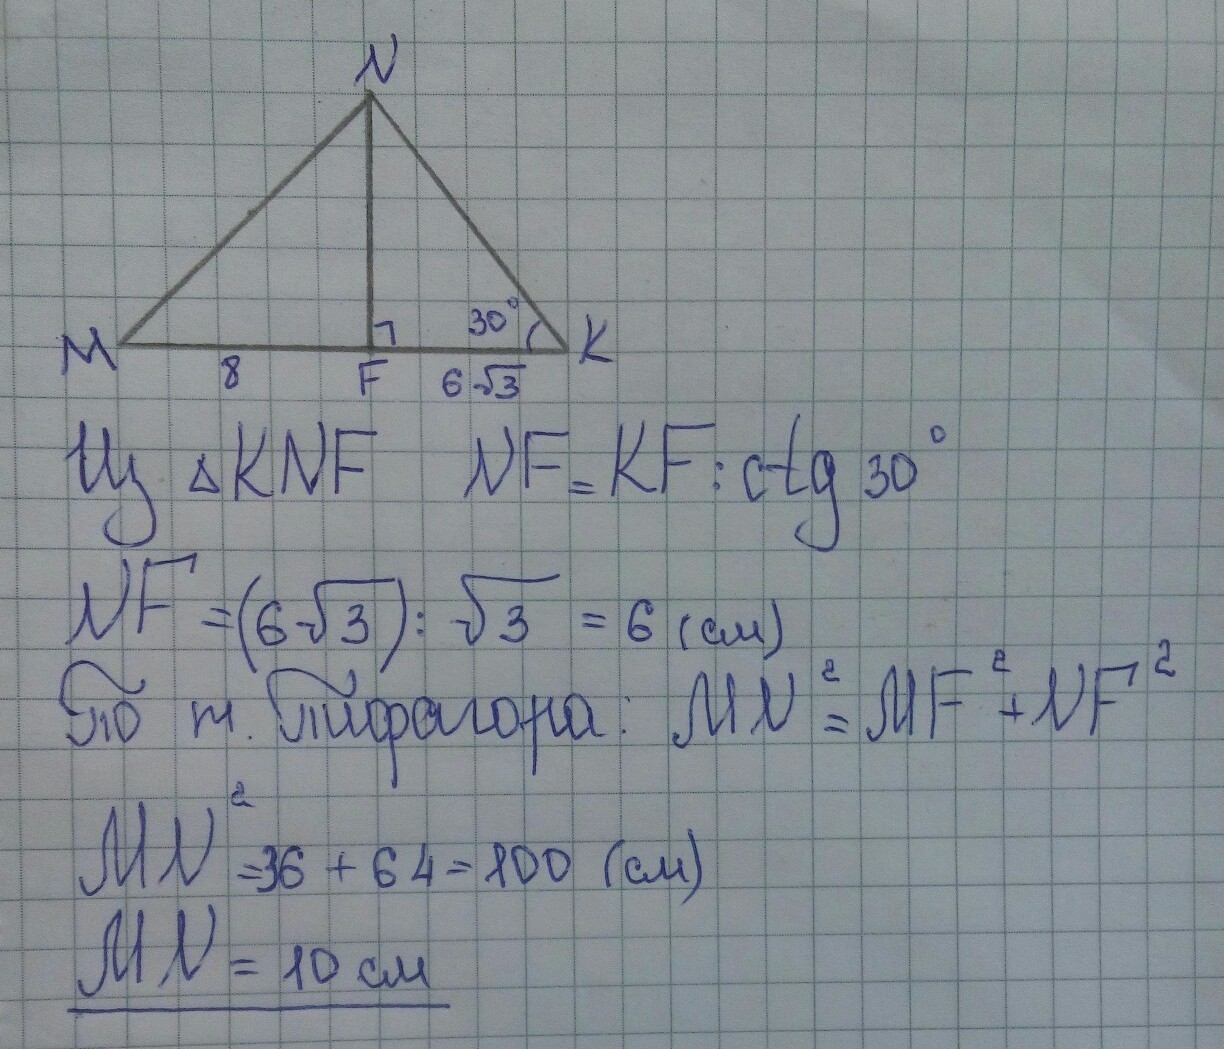 N
30°
M 8 F 6√3 K
Из △KNF NF = KF : ctg 30°
NF = (6√3) : √3 = 6 (см)
По т. Пифагора: MN² = MF² + NF²
MN² = 36 + 64 = 100 (см)
MN = 10 см